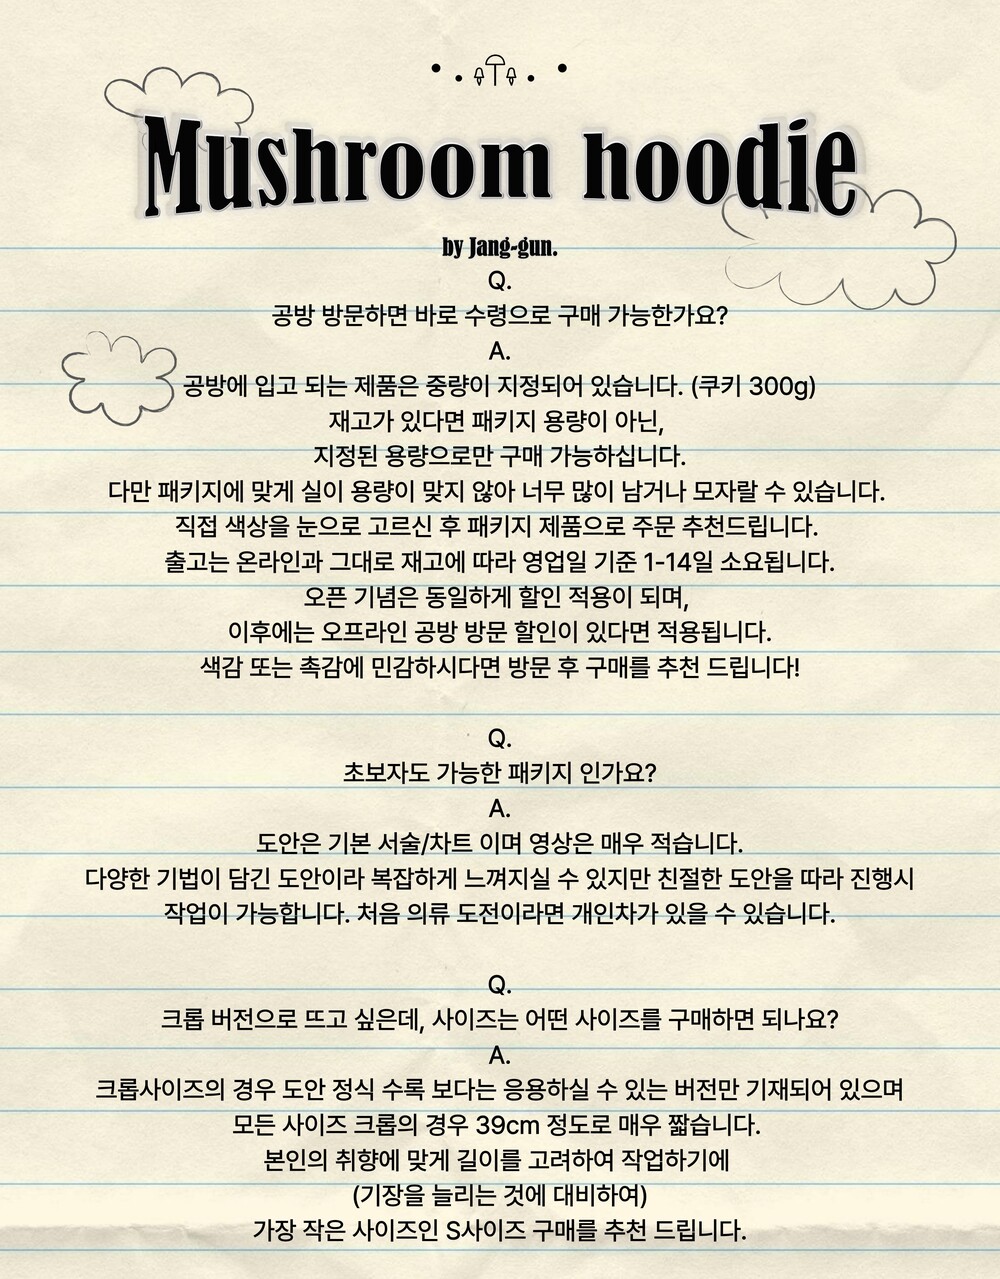 Mushroom hoodie
by Jang-gun.
Q.
공방 방문하면 바로 수령으로 구매 가능한가요?
A.
공방에 입고 되는 제품은 중량이 지정되어 있습니다. (쿠키 300g)
재고가 있다면 패키지 용량이 아닌,
지정된 용량으로만 구매 가능하십니다.
다만 패키지에 맞게 실이 용량이 맞지 않아 너무 많이 남거나 모자랄 수 있습니다.
직접 색상을 눈으로 고르신 후 패키지 제품으로 주문 추천드립니다.
출고는 온라인과 그대로 재고에 따라 영업일 기준 1-14일 소요됩니다.
오픈 기념은 동일하게 할인 적용이 되며,
이후에는 오프라인 공방 방문 할인이 있다면 적용됩니다.
색감 또는 촉감에 민감하시다면 방문 후 구매를 추천 드립니다!
Q.
초보자도 가능한 패키지 인가요?
A.
도안은 기본 서술/차트 이며 영상은 매우 적습니다.
다양한 기법이 담긴 도안이라 복잡하게 느껴지실 수 있지만 친절한 도안을 따라 진행시
작업이 가능합니다. 처음 의류 도전이라면 개인차가 있을 수 있습니다.
Q.
크롭 버전으로 뜨고 싶은데, 사이즈는 어떤 사이즈를 구매하면 되나요?
A.
크롭사이즈의 경우 도안 정식 수록 보다는 응용하실 수 있는 버전만 기재되어 있으며
모든 사이즈 크롭의 경우 39cm 정도로 매우 짧습니다.
본인의 취향에 맞게 길이를 고려하여 작업하기에
(기장을 늘리는 것에 대비하여)
가장 작은 사이즈인 S사이즈 구매를 추천 드립니다.